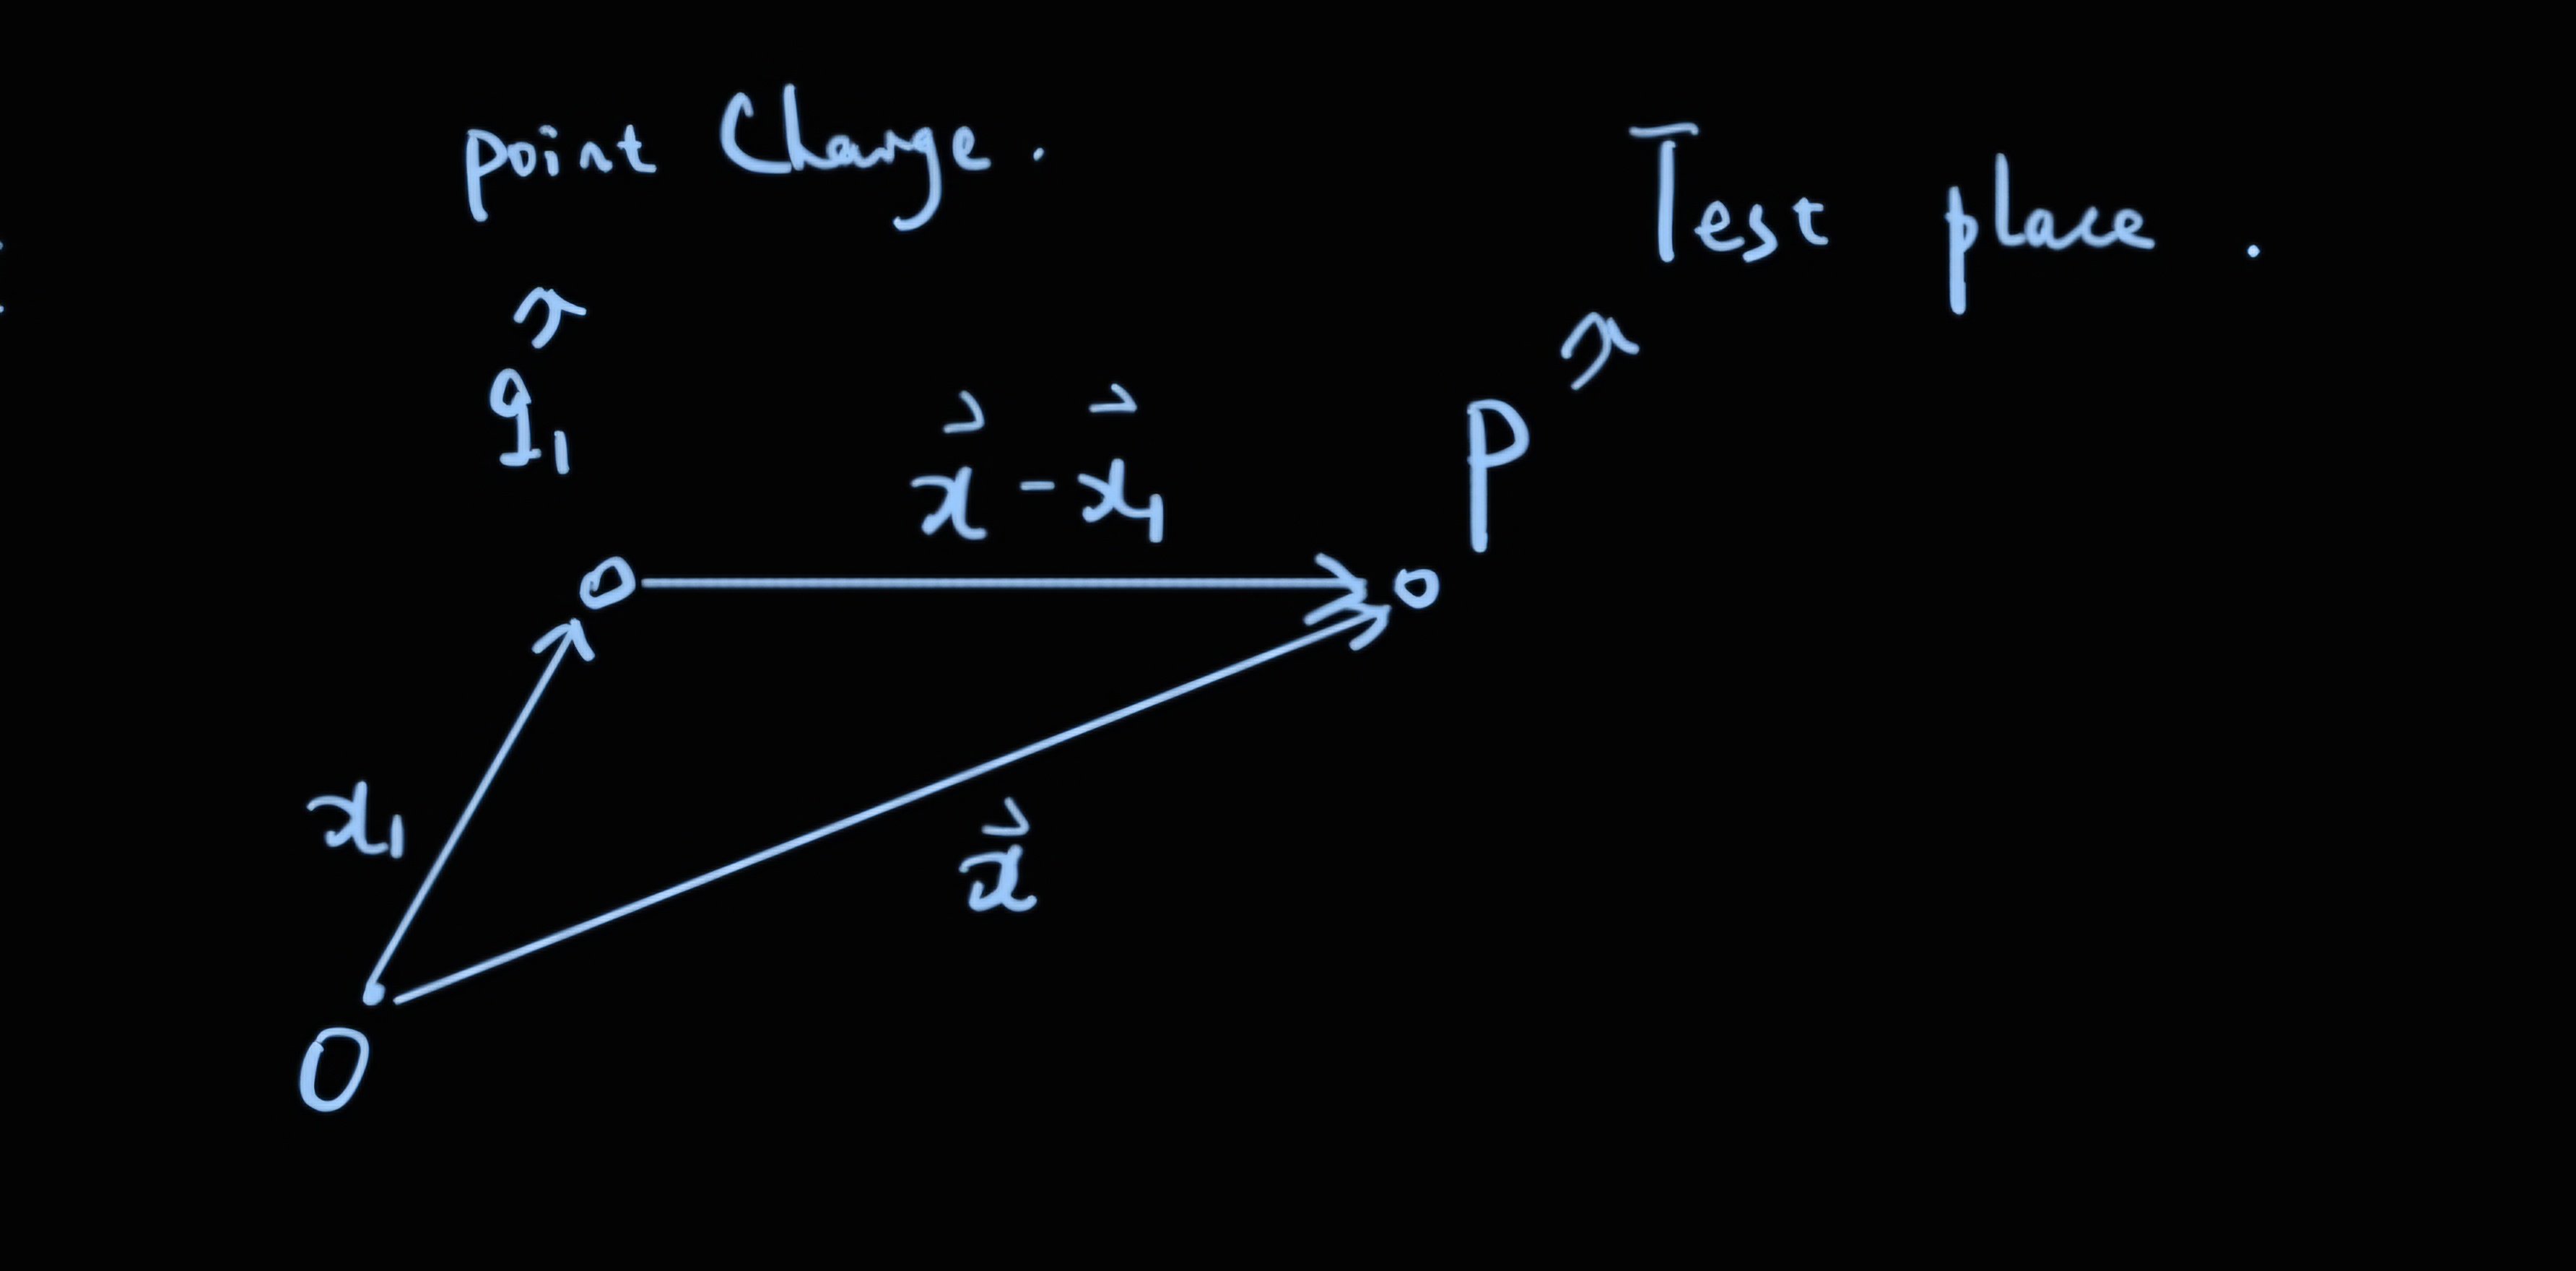 point Charge.
Test place.
q₁
P
x⃗ - x⃗₁
x₁
x⃗
O